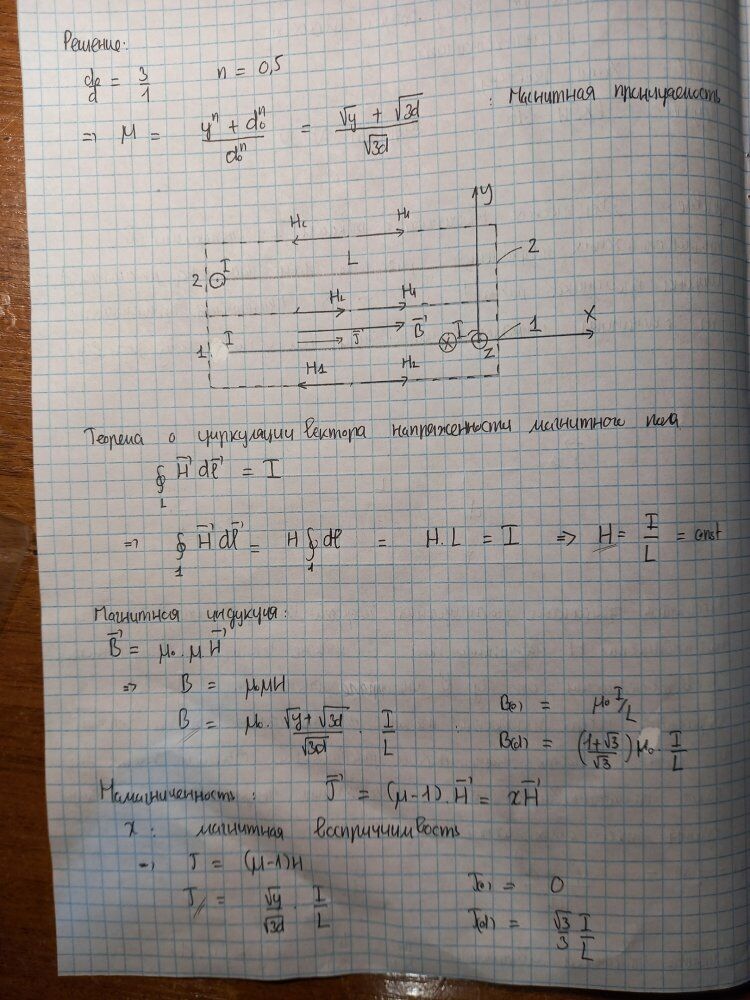 Решение:
d₀/d = 3/1    n = 0,5
=> μ = (yⁿ + d₀ⁿ)/d₀ⁿ = (√y + √3d)/√3d : Магнитная проницаемость
y
H₂ H₁
L
2 I 2
H₂ H₁
1 I J⃗ B⃗ I z 1 X
H₁ H₂
Теорема о циркуляции вектора напряженности магнитного поля
∮_L H⃗ dl⃗ = I
=> ∮₁ H⃗ dl⃗ = H ∮₁ dl = H.L = I => H = I/L = const
Магнитная индукция:
B⃗ = μ₀.μ H⃗
=> B = μ₀μH
B = μ₀. (√y + √3d)/√3d . I/L
B(0) = μ₀ I/L
B(d) = ((1+√3)/√3) μ₀. I/L
Намагниченность: J⃗ = (μ-1).H⃗ = xH⃗
x: магнитная восприимчивость
=> J = (μ-1)H
J = √y/√3d . I/L
J(0) = 0
J(d) = √3/3 I/L